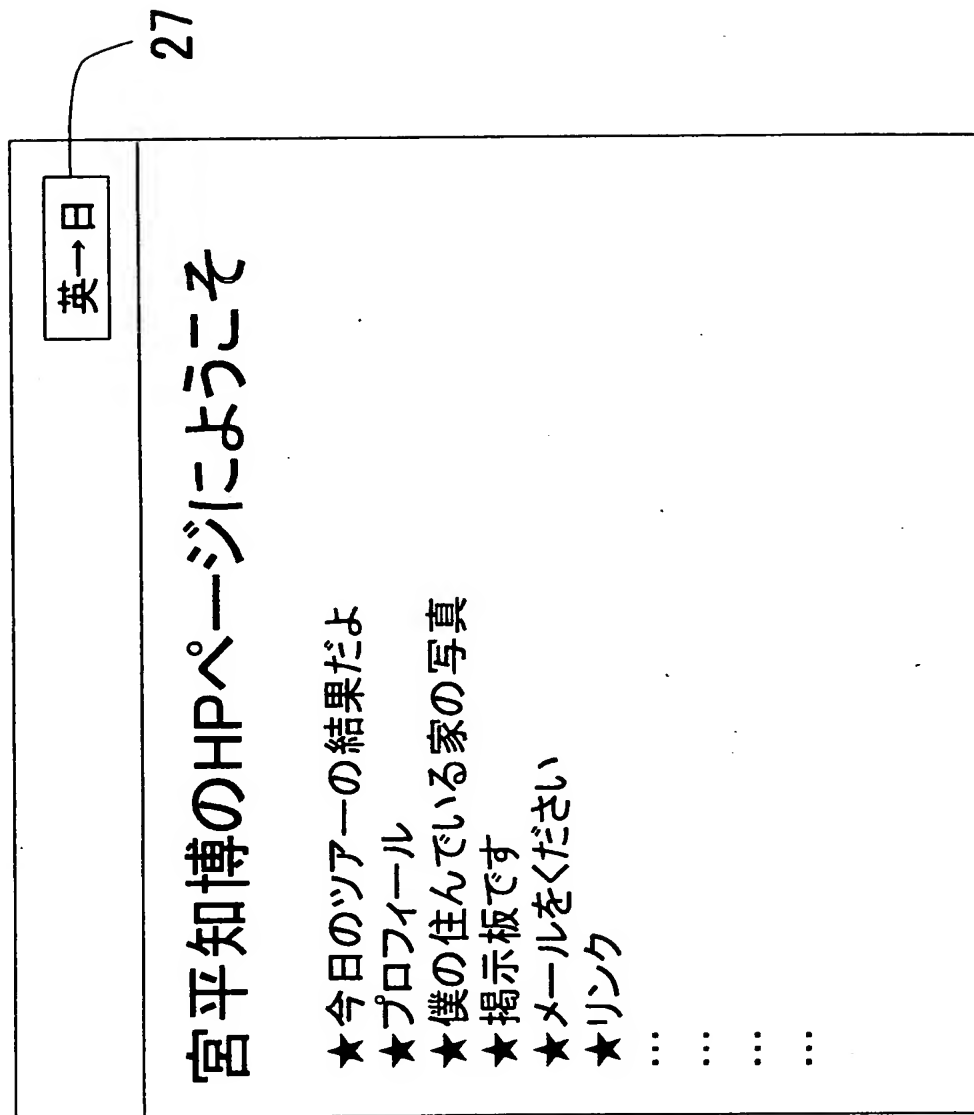 27
英→日
宮平知博のHPページにようこそ
★今日のツアーの結果だよ
★プロフィール
★僕の住んでいる家の写真
★掲示板です
★メールをください
★リンク
…
…
…
…